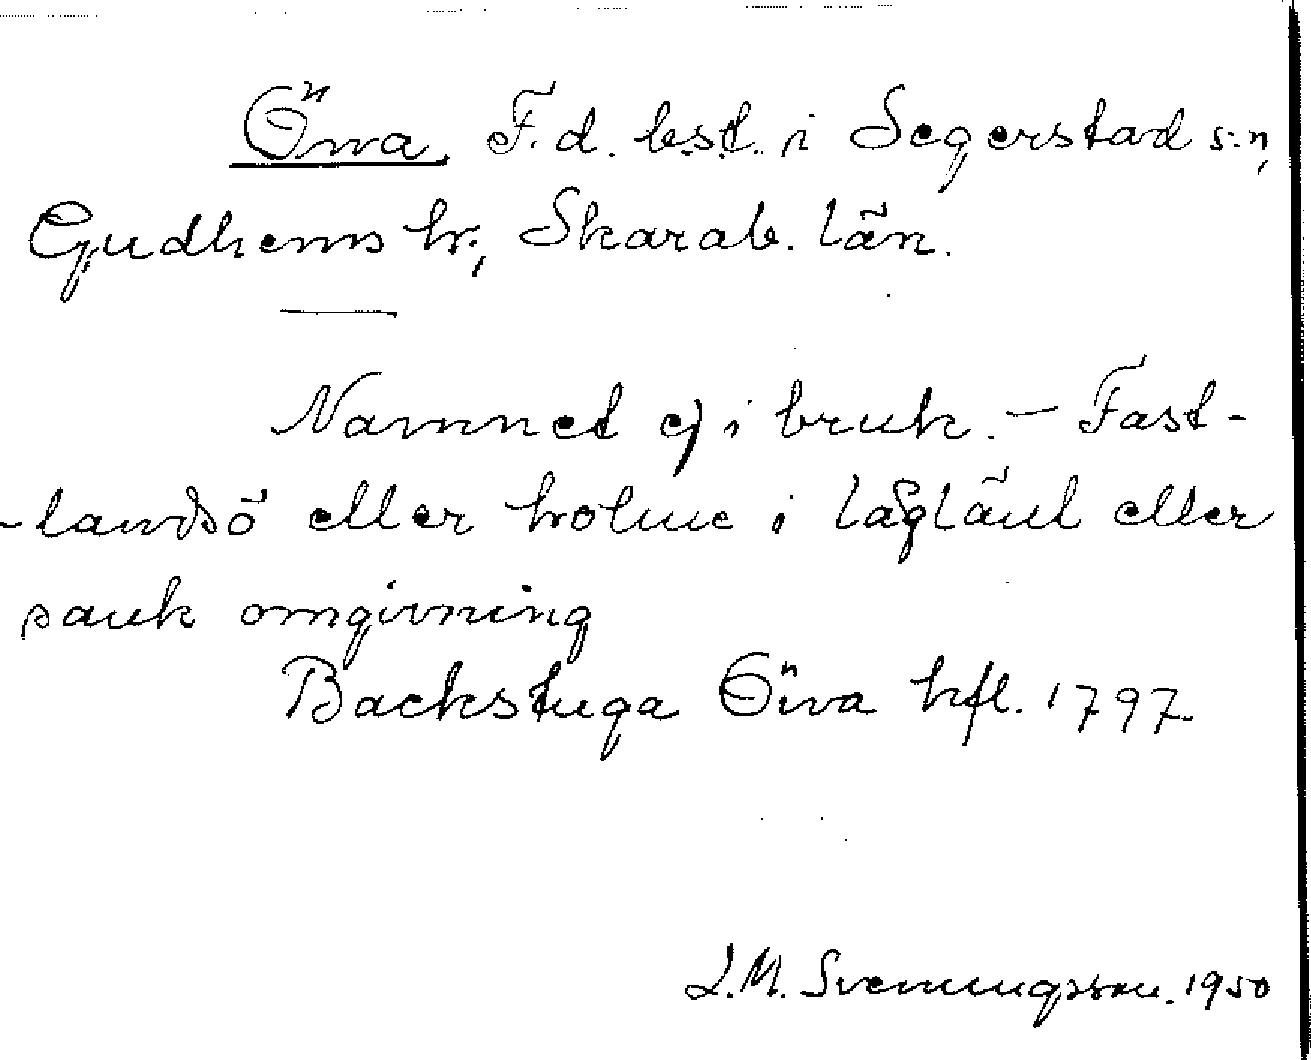 Öna, F.d. bst. i Segerstad s:n,
Gudhems hr., Skarab. län.
Namnet ej i bruk. – Fast-
-landsö eller holme i låglänt eller
sank omgivning
Backstuga Öiva hfl. 1797.
J.M. Svenningsson. 1950